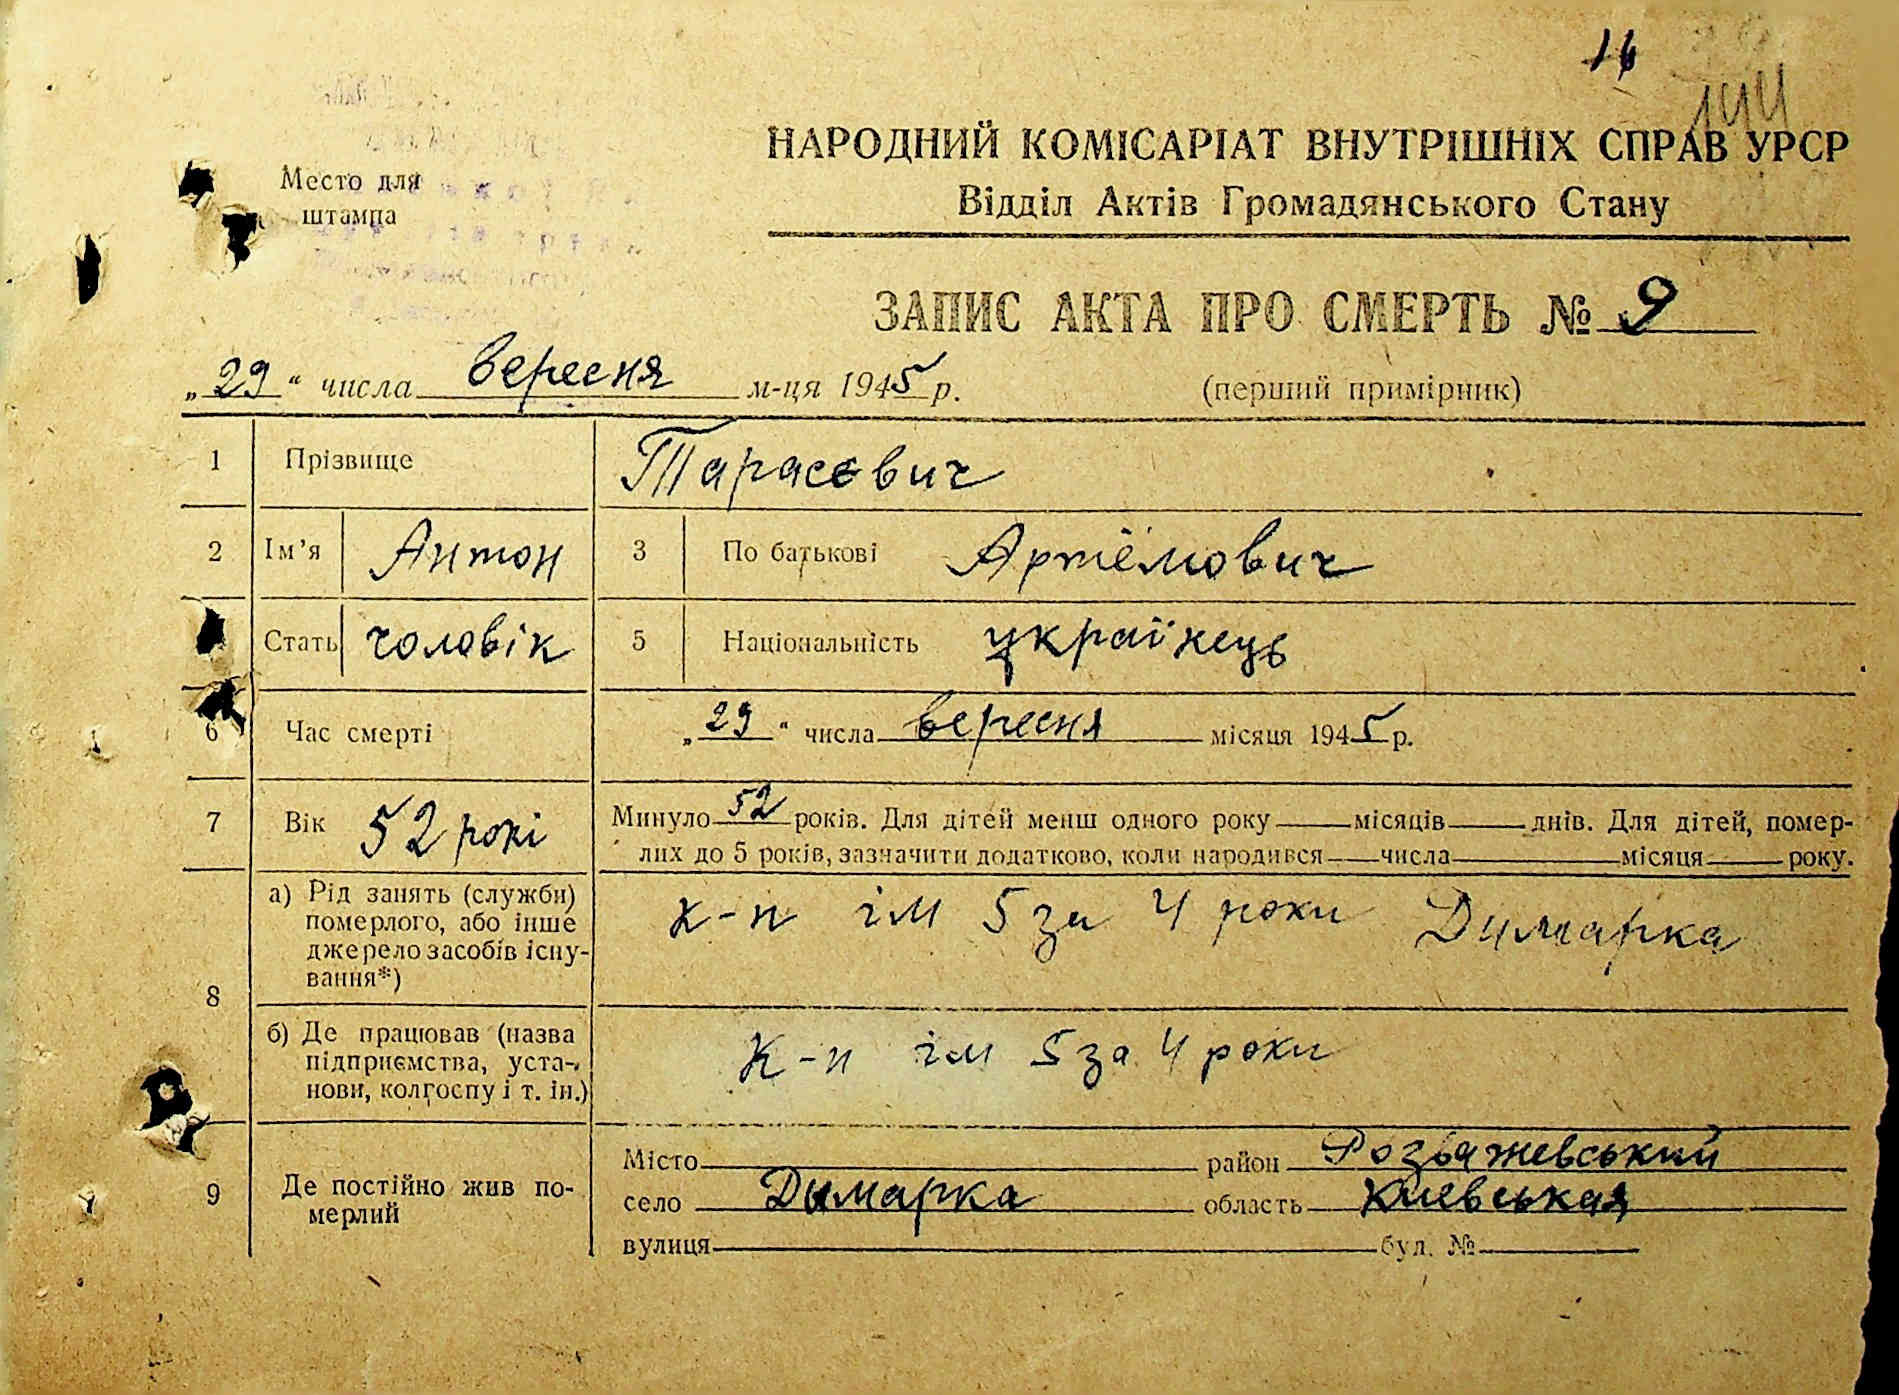 16
144
НАРОДНИЙ КОМІСАРІАТ ВНУТРІШНІХ СПРАВ УРСР
Відділ Актів Громадянського Стану
Место для
штампа
ЗАПИС АКТА ПРО СМЕРТЬ № 9
„29“ числа вересня м-ця 1945 р.
(перший примірник)
1 Прізвище Тарасєвич
2 Ім’я Антон 3 По батькові Артёмович
Стать чоловік 5 Національність українець
6 Час смерті „29“ числа вересня місяця 1945 р.
7 Вік 52 рокі Минуло 52 років. Для дітей менш одного року місяців днів. Для дітей, помер-
лих до 5 років, зазначити додатково, коли народився числа місяця року.
8 а) Рід занять (служби)
померлого, або інше
джерело засобів існу-
вання*)
к-п ім 5 за 4 роки Димарка
б) Де працював (назва
підприємства, уста-
нови, колгоспу і т. ін.)
К-п ім 5 за 4 роки
9 Де постійно жив по-
мерлий
Місто район Розважевський
село Димарка область Києвськая
вулиця буд. №